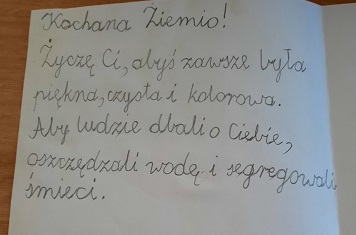 Kochana Ziemio!
Życzę Ci, abyś zawsze była
piękna, czysta i kolorowa.
Aby ludzie dbali o Ciebie,
oszczędzali wodę i segregowali
śmieci.